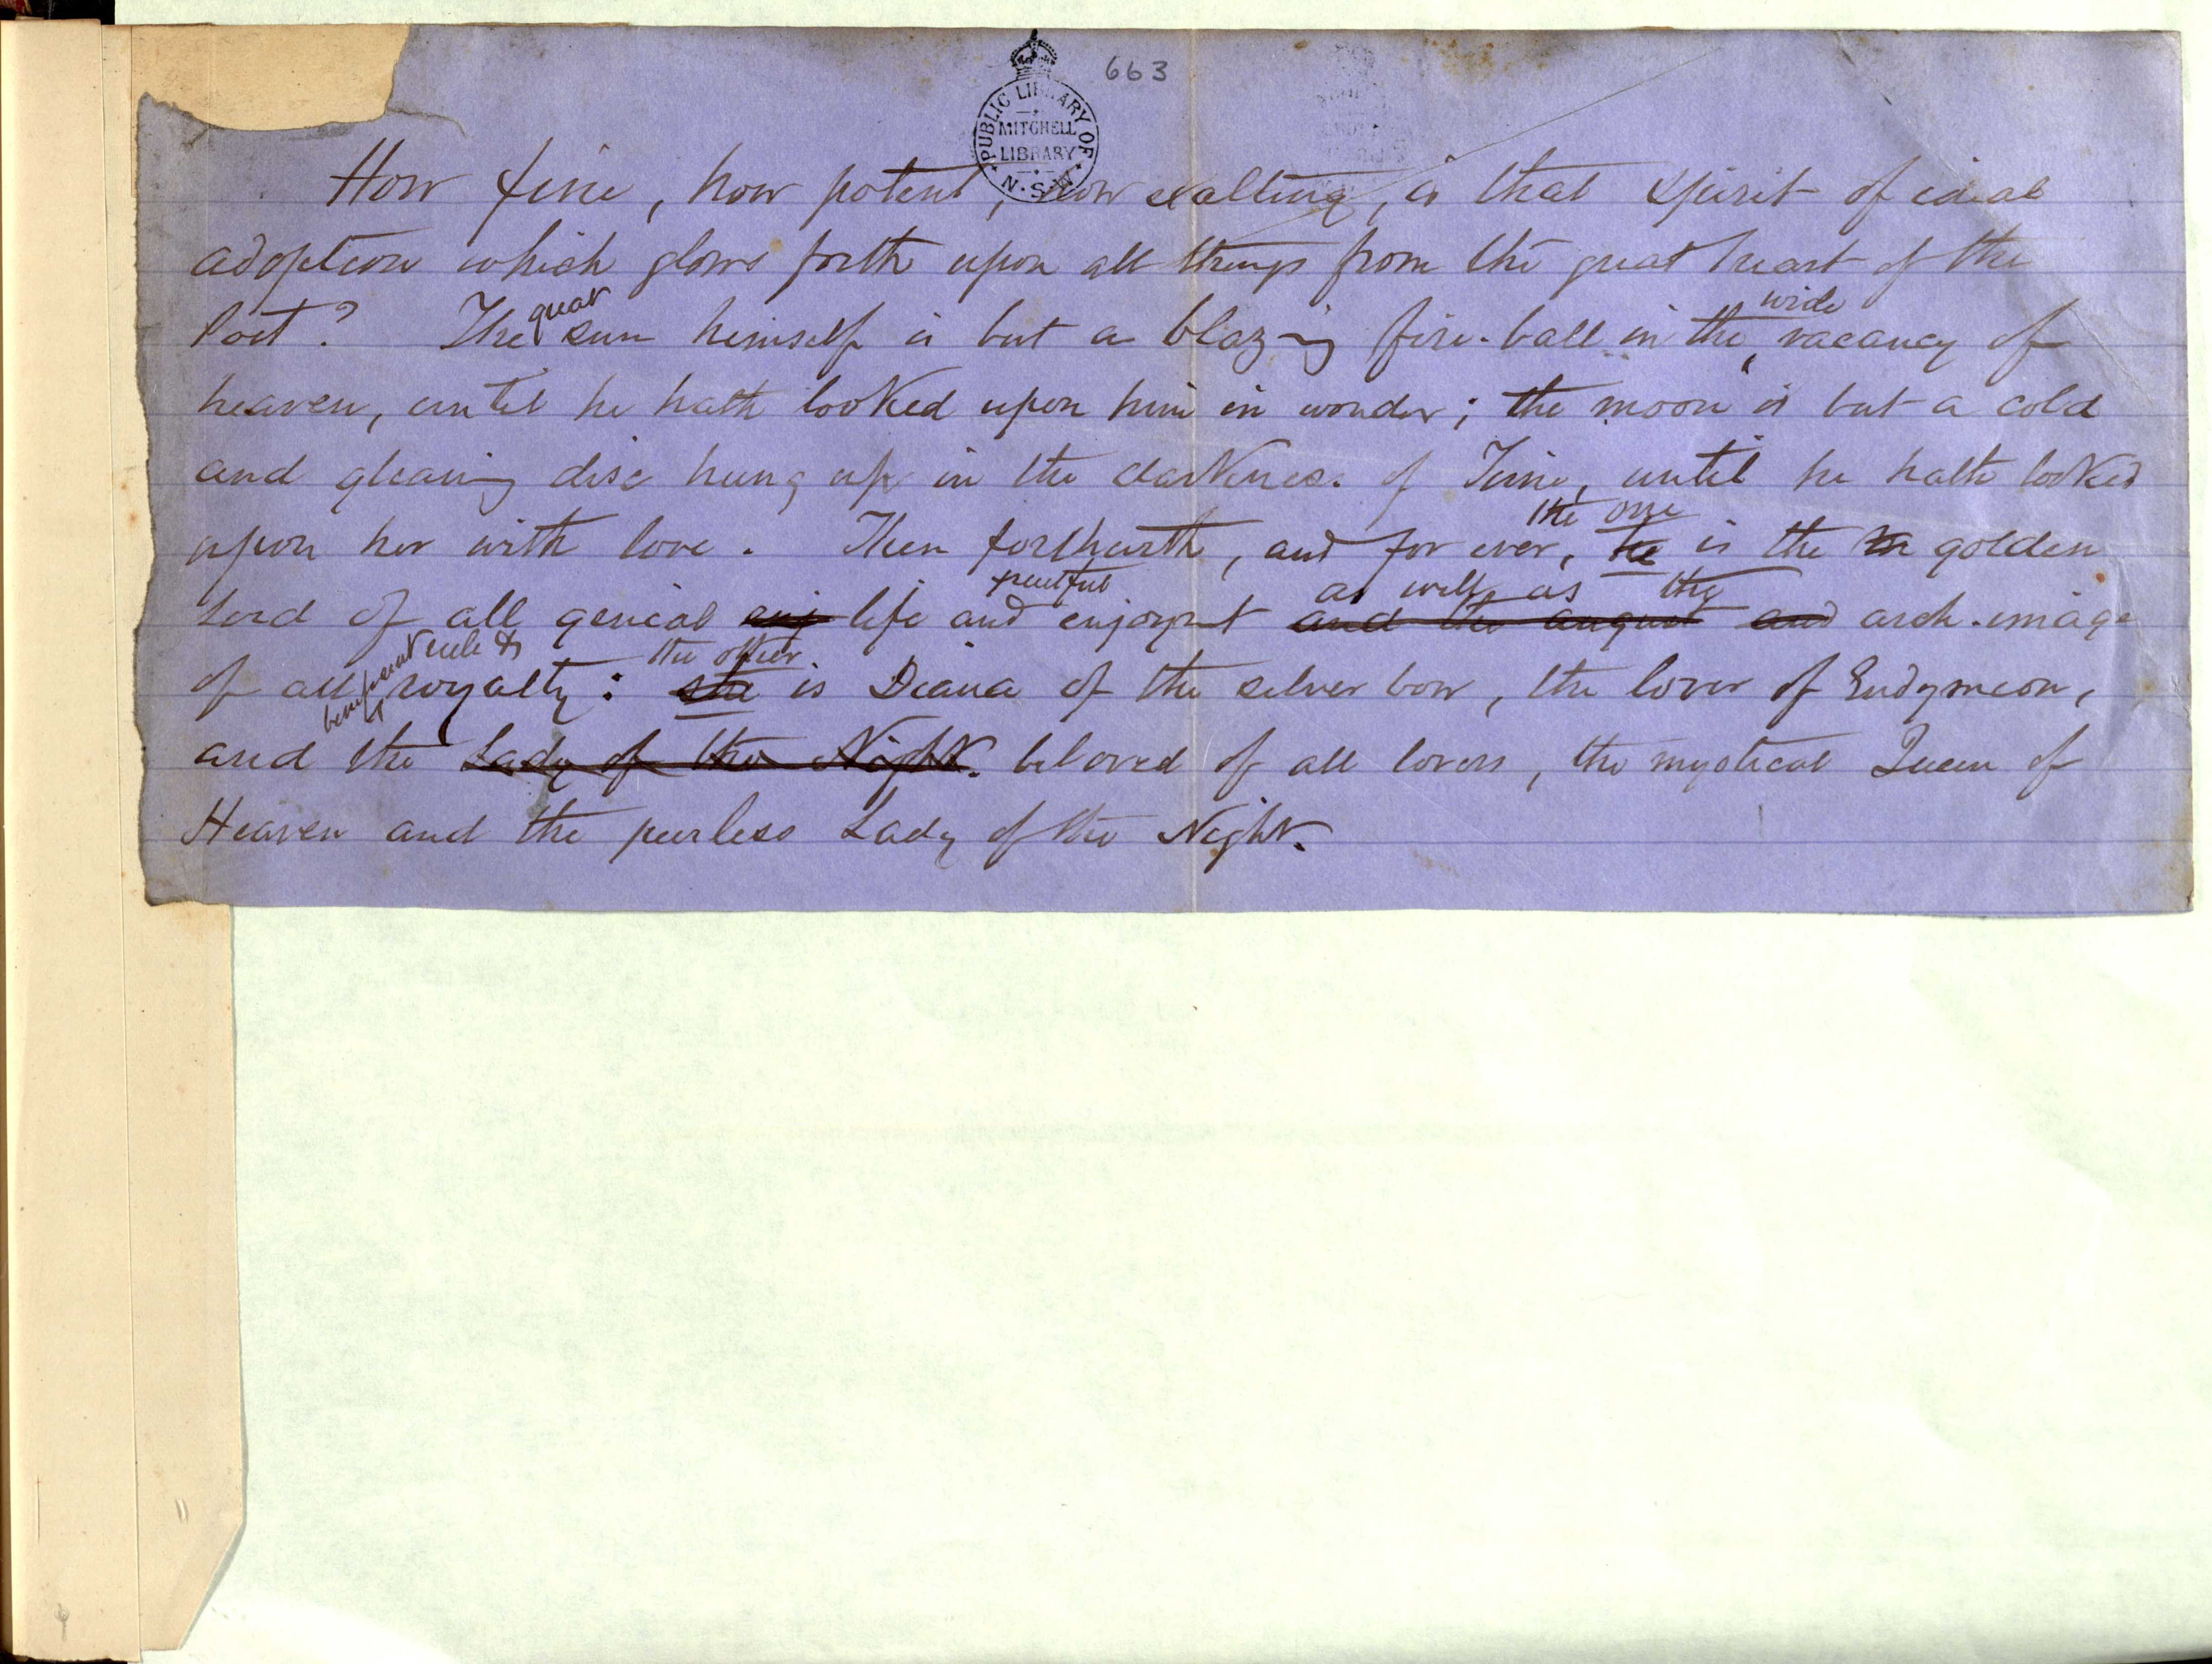 663
PUBLIC LIBRARY OF N.S.W.
MITCHELL
LIBRARY
How fine, how potent, how exalting, is that spirit of ideal
adoption which glows forth upon all things from the great heart of the
Poet? The great sun himself is but a blazing fire-ball in the wide vacancy of
heaven, until he hath looked upon him in wonder; the moon is but a cold
and gleaming disc hung up in the darkness of Time, until he hath looked
upon her with love. Then forthwith, and for ever, the one he is the golden
Lord of all genial enj life and fruitful enjoymt and the august as well as the and arch-image
of all beneficent rule & royalty: the other she is Diana of the silver bow, the lover of Endymion,
and the Lady of the Night. beloved of all lovers, the mystical Queen of
Heaven and the peerless Lady of the Night.